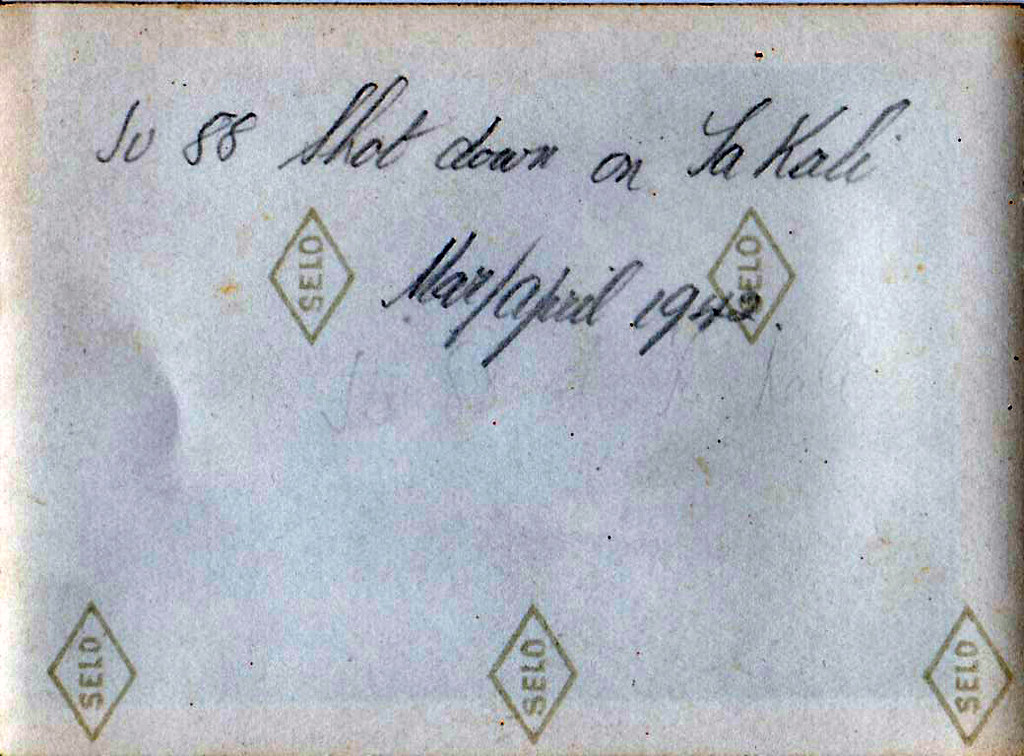 Ju 88 Shot down on Ta Kali
Mar/April 1942.
SELO
SELO
SELO
SELO
SELO